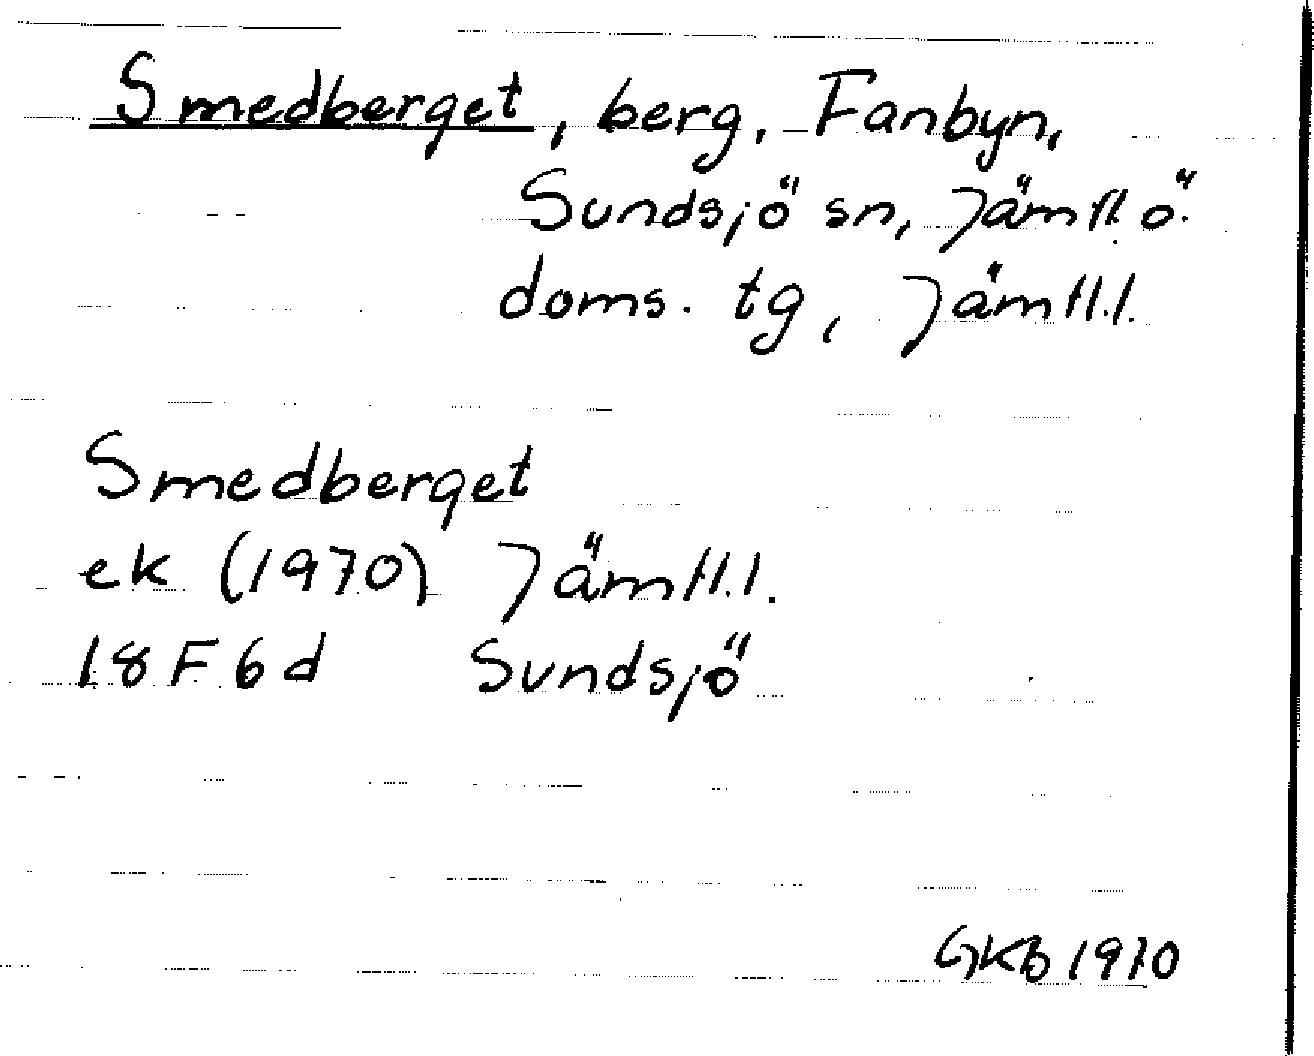 Smedberget, berg, Fanbyn,
Sundsjö sn, Jämtl. ö.
doms. tg, Jämtl.l.
Smedberget
ek (1970) Jämtl.l.
18F6d Sundsjö
GKB 1970